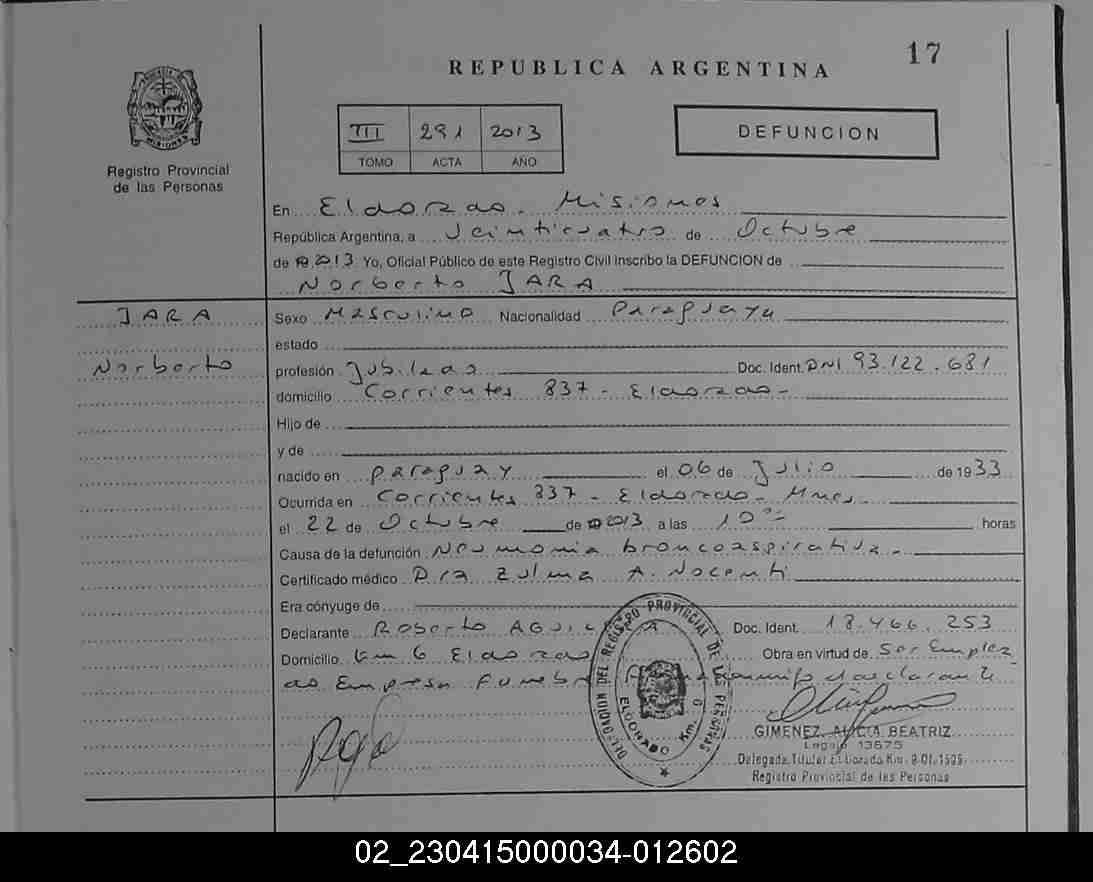 17
REPUBLICA ARGENTINA
III 291 2013
TOMO ACTA AÑO
DEFUNCION
MISIONES
Registro Provincial
de las Personas
En Eldorado. Misiones
República Argentina, a Veinticuatro de Octubre
de 2013 Yo, Oficial Público de este Registro Civil inscribo la DEFUNCION de
Norberto JARA
JARA
Norberto
Sexo Masculino Nacionalidad Paraguaya
estado
profesión Jubilado Doc. Ident. DNI 93.122.681
domicilio Corrientes 837 - Eldorado -
Hijo de
y de
nacido en Paraguay el 06 de Julio de 1933
Ocurrida en Corrientes 837 - Eldorado - Mnes
el 22 de Octubre de 2013 a las 10 horas
Causa de la defunción Neumonia broncoaspirativa -
Certificado médico Dra Zulma A. Nocenti
Era cónyuge de
Declarante Roberto Doc. Ident. 18.466.253
Domicilio Km 6 Eldorado Obra en virtud de Ser Emplea
do Empresa Funebre declarante
DELEGACION DEL REGISTRO PROVINCIAL DE LAS PERSONAS
ELDORADO Km. 9
GIMENEZ, ALICIA BEATRIZ
Legajo 13675
Delegada Titular Eldorado Km. 9
Registro Provincial de las Personas
02_230415000034-012602